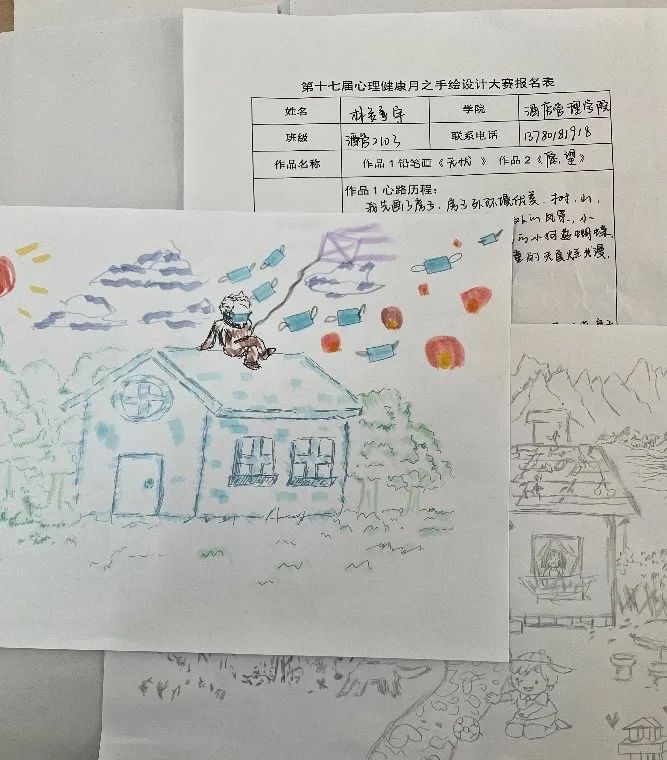 第十七届心理健康月之手绘设计大赛报名表
姓名 林 宇 学院 酒店管理学院
班级 酒管2103 联系电话 13780181918
作品名称 作品1铅笔画《无忧》 作品2《愿望》
作品1心路历程：
我先画了房子，房子外环境优美，树，山，
的风景，小
的小河蓝蝴蝶
童的天真烂漫，